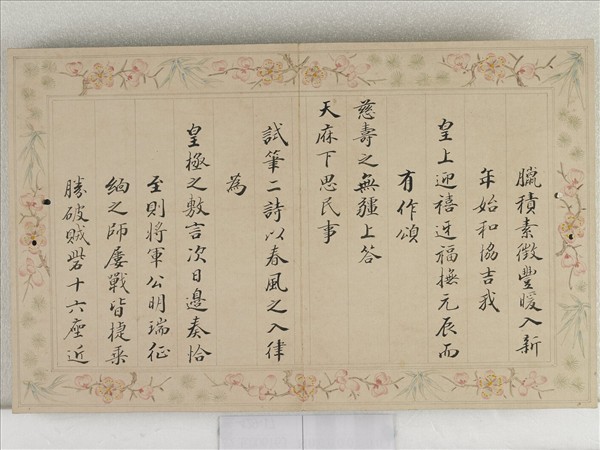 臘積素徵豐暖入新
年始和協吉我
皇上迎禧迓福撫元辰而
有作頌
慈壽之無疆上答
天庥下思民事
試筆二詩以春風之入律
為
皇極之敷言次日邊奏恰
至則將軍公明瑞征
緬之師屢戰皆捷乘
勝破賊砦十六座近